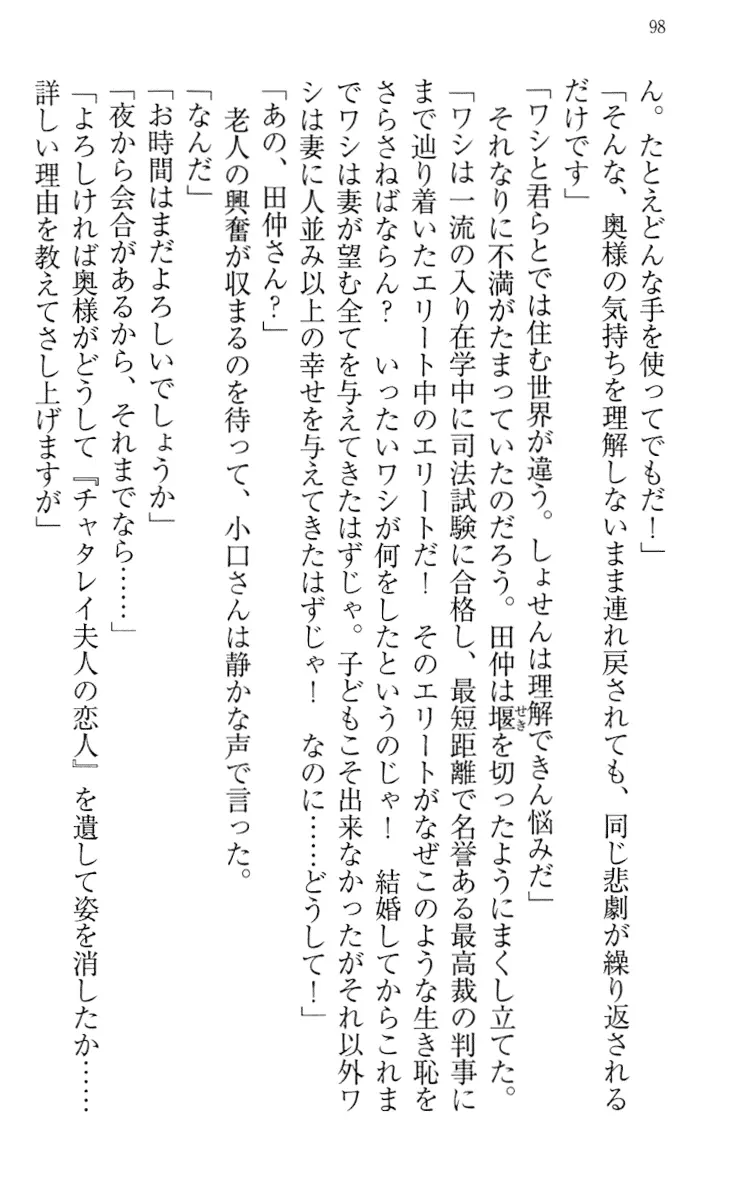 98
ん。たとえどんな手を使ってでもだ！」
「そんな、奥様の気持ちを理解しないまま連れ戻されても、同じ悲劇が繰り返される
だけです」
「ワシと君らとでは住む世界が違う。しょせんは理解できん悩みだ」
　それなりに不満がたまっていたのだろう。田仲は堰せきを切ったようにまくし立てた。
「ワシは一流の入り在学中に司法試験に合格し、最短距離で名誉ある最高裁の判事に
まで辿り着いたエリート中のエリートだ！　そのエリートがなぜこのような生き恥を
さらさねばならん？　いったいワシが何をしたというのじゃ！　結婚してからこれま
でワシは妻が望む全てを与えてきたはずじゃ。子どもこそ出来なかったがそれ以外ワ
シは妻に人並み以上の幸せを与えてきたはずじゃ！　なのに……どうして！」
「あの、田仲さん？」
　老人の興奮が収まるのを待って、小口さんは静かな声で言った。
「なんだ」
「お時間はまだよろしいでしょうか」
「夜から会合があるから、それまでなら……」
「よろしければ奥様がどうして『チャタレイ夫人の恋人』を遺して姿を消したか……
詳しい理由を教えてさし上げますが」